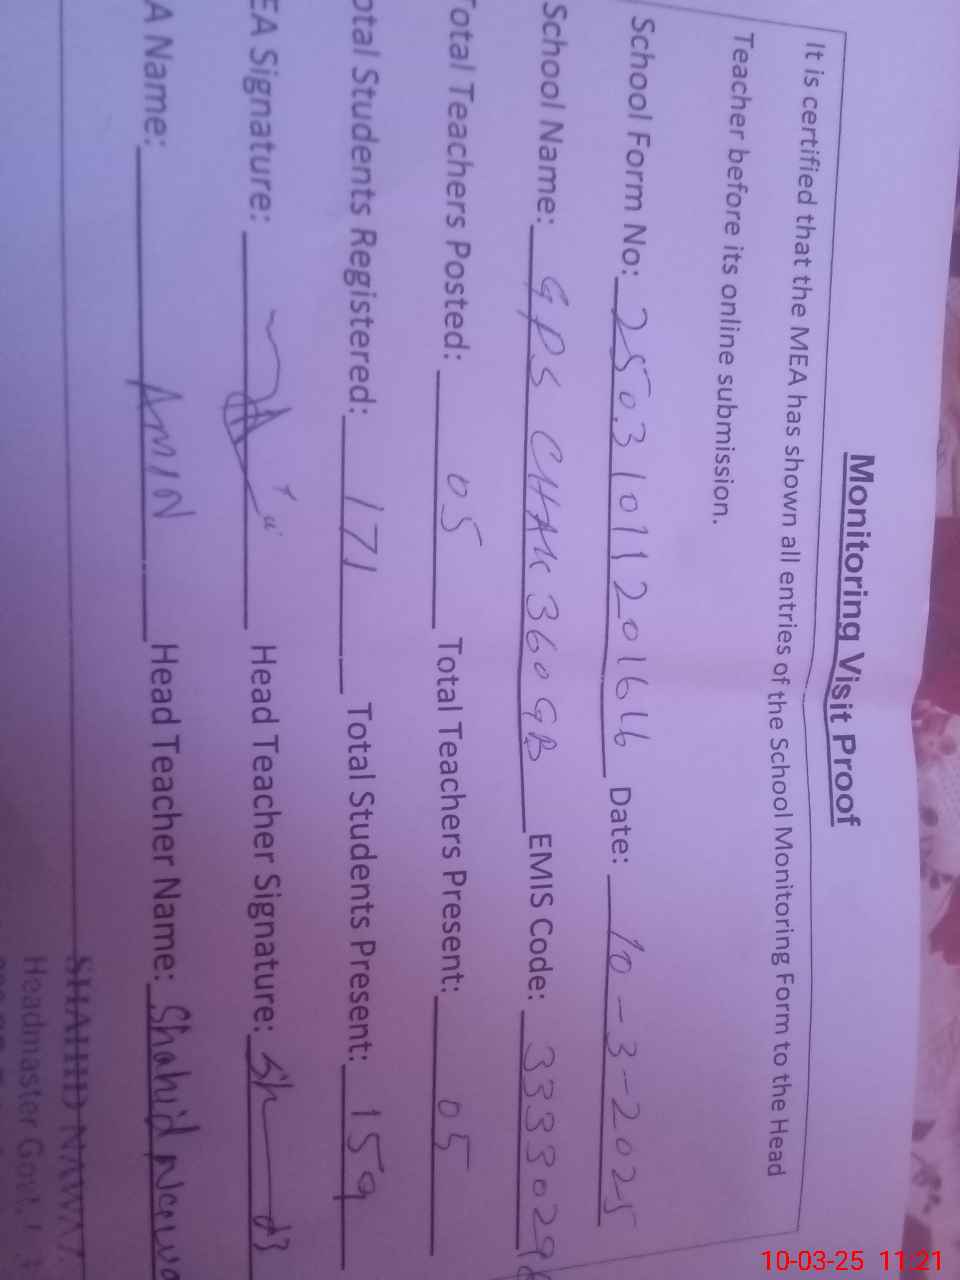 Monitoring Visit Proof
It is certified that the MEA has shown all entries of the School Monitoring Form to the Head
Teacher before its online submission.
School Form No: 2503101120166 Date: 10-3-2025
School Name: GPS CHAK 360 GB EMIS Code: 3333029
Total Teachers Posted: 05 Total Teachers Present: 05
otal Students Registered: 171 Total Students Present: 159
EA Signature: Head Teacher Signature:
A Name: AMIN Head Teacher Name: Shahid Nawa
SHAHID NAWAZ
Headmaster Govt.
10-03-25 11:21